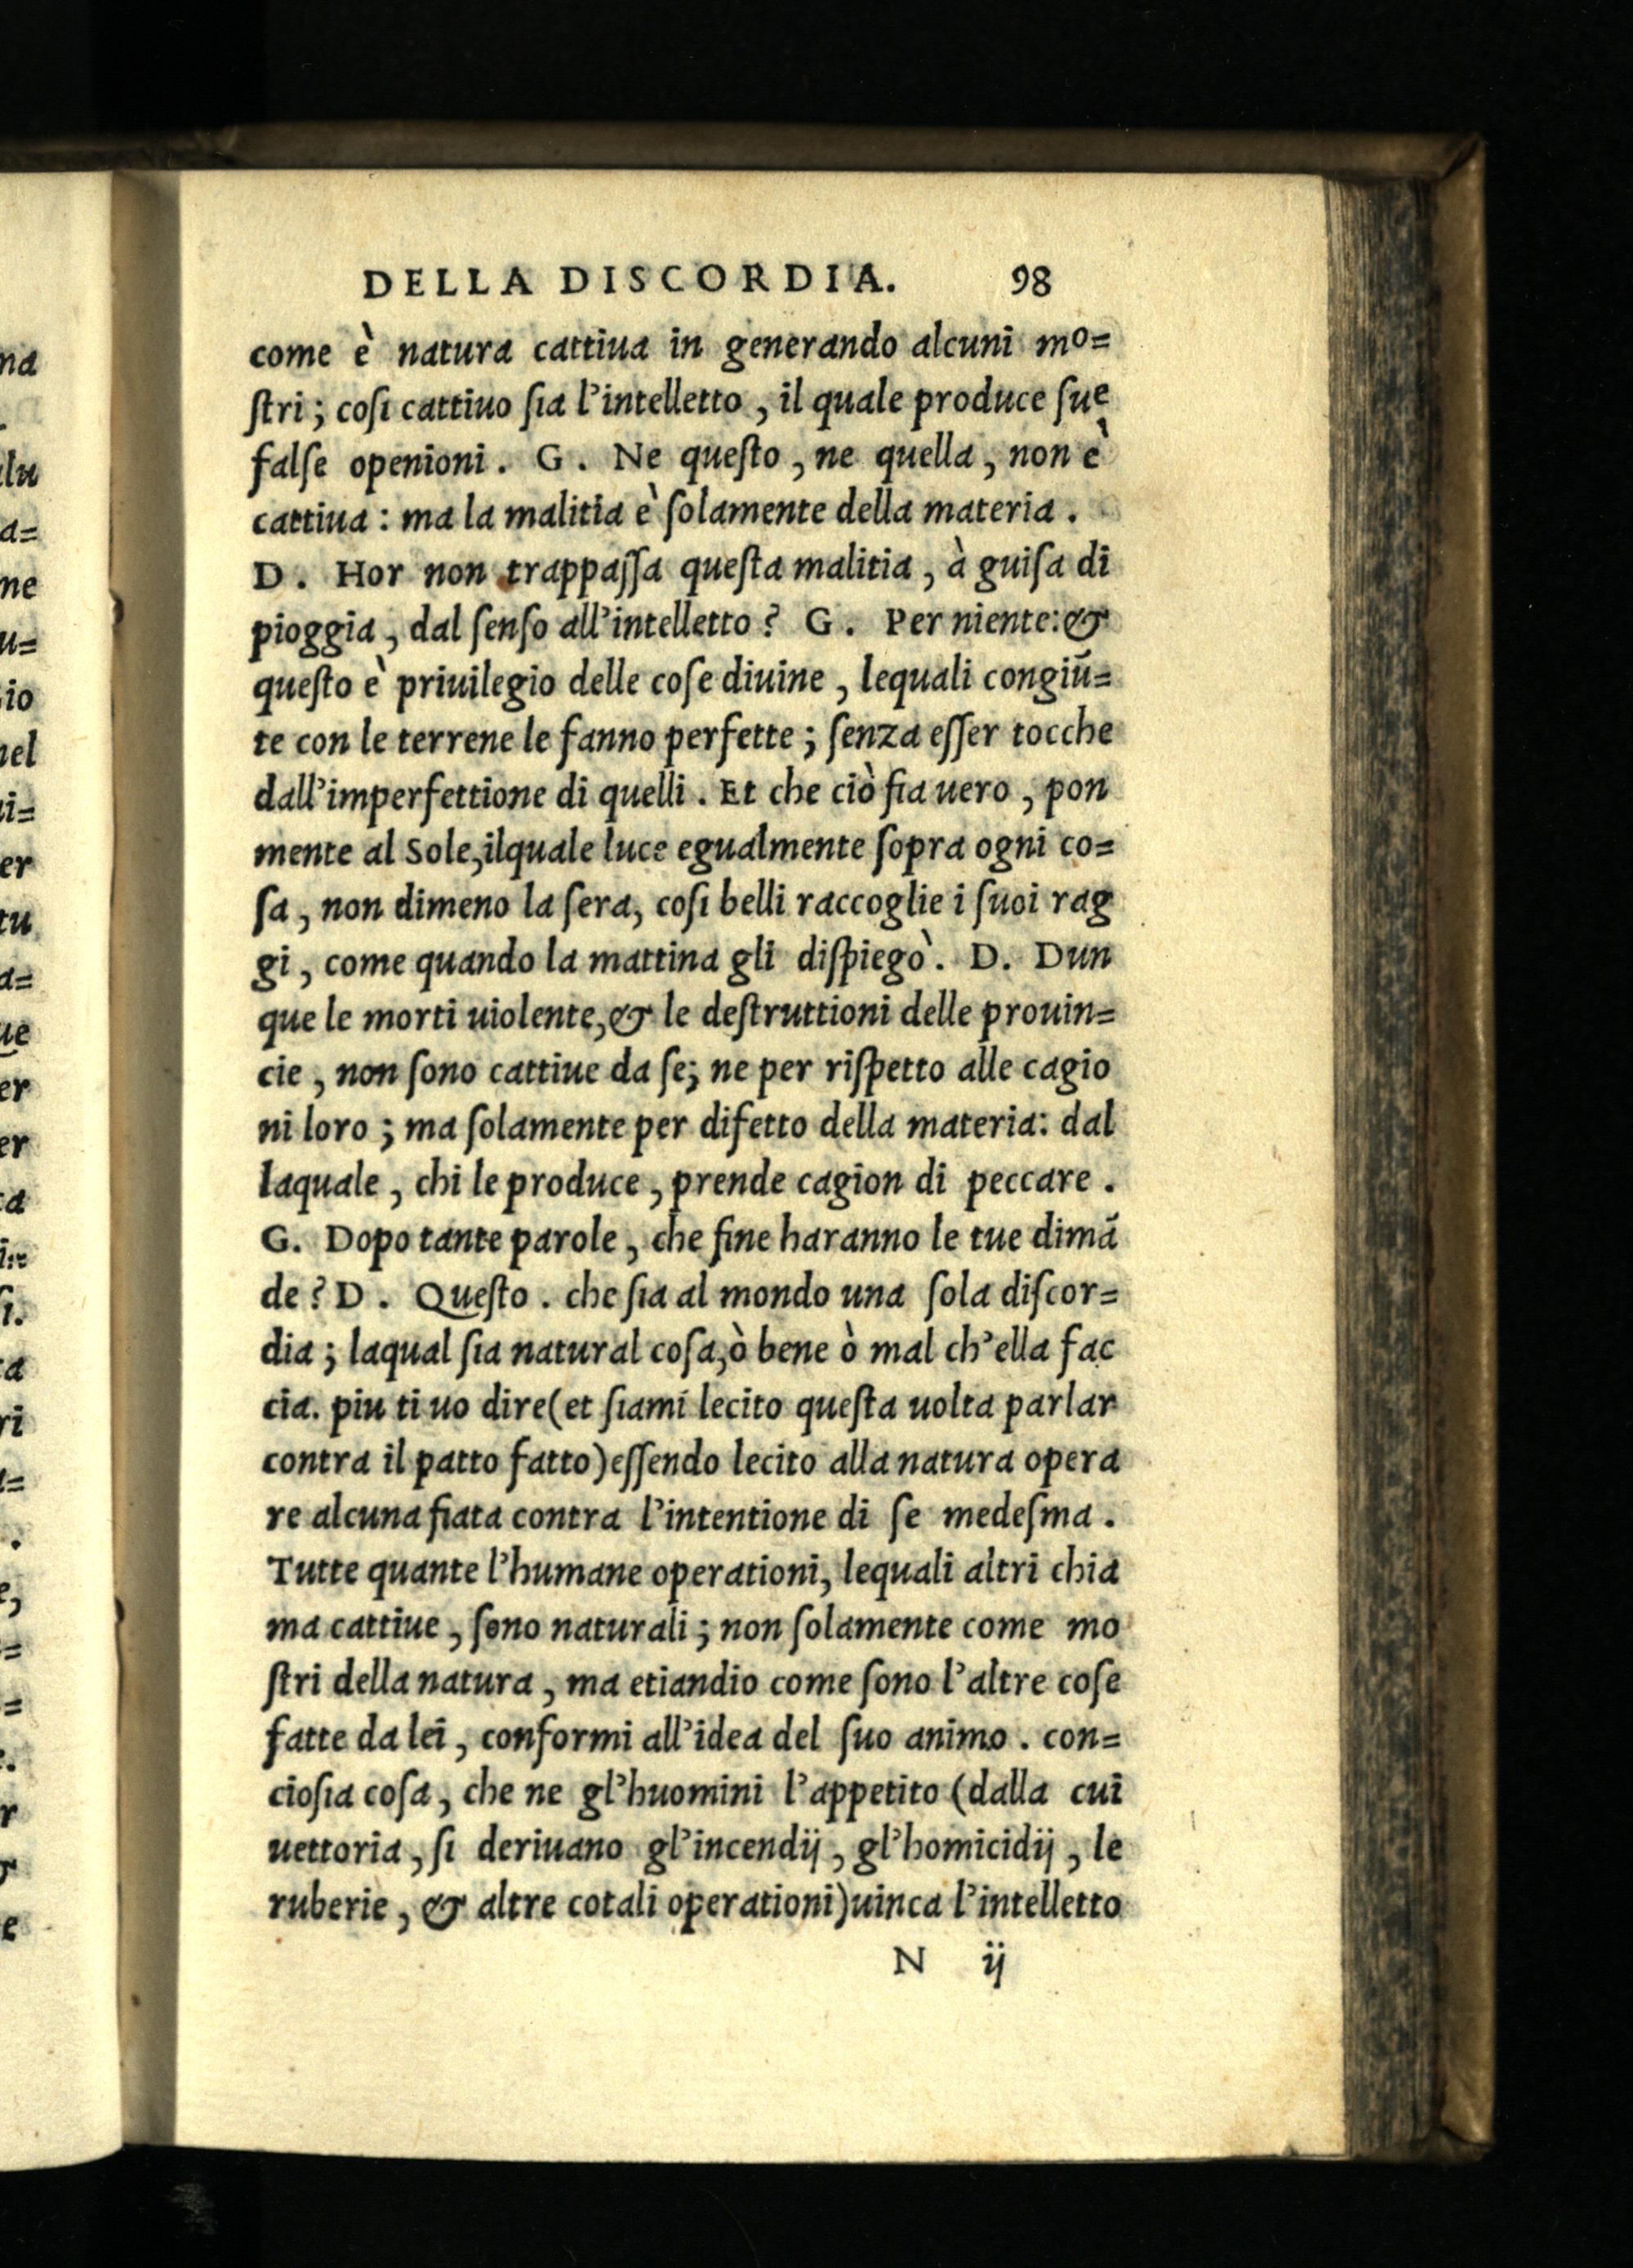 DELLA DISCORDIA. 98
come è natura cattiua in generando alcuni mo=
ſtri; coſi cattiuo ſia l'intelletto, il quale produce ſue
falſe openioni. G. Ne queſto, ne quella, non è
cattiua: ma la malitia è ſolamente della materia.
D. Hor non trappaſſa queſta malitia, à guiſa di
pioggia, dal ſenſo all'intelletto? G. Per niente: &
queſto è priuilegio delle coſe diuine, lequali congiũ=
te con le terrene le fanno perfette; ſenza eſſer tocche
dall'imperfettione di quelli. Et che ciò ſia uero, pon
mente al Sole, ilquale luce egualmente ſopra ogni co=
ſa, non dimeno la ſera, coſi belli raccoglie i ſuoi rag
gi, come quando la mattina gli diſpiegò. D. Dun
que le morti uiolente, & le deſtruttioni delle prouin=
cie, non ſono cattiue da ſe; ne per riſpetto alle cagio
ni loro; ma ſolamente per difetto della materia: dal
laquale, chi le produce, prende cagion di peccare.
G. Dopo tante parole, che fine haranno le tue dimã
de? D. Queſto. che ſia al mondo una ſola diſcor=
dia; laqual ſia natural coſa, ò bene ò mal ch'ella fac
cia. piu ti uo dire (et ſiami lecito queſta uolta parlar
contra il patto fatto) eſſendo lecito alla natura opera
re alcuna fiata contra l'intentione di ſe medeſma.
Tutte quante l'humane operationi, lequali altri chia
ma cattiue, ſono naturali; non ſolamente come mo
ſtri della natura, ma etiandio come ſono l'altre coſe
fatte da lei, conformi all'idea del ſuo animo. con=
cioſia coſa, che ne gl'huomini l'appetito (dalla cui
uettoria, ſi deriuano gl'incendij, gl'homicidij, le
ruberie, & altre cotali operationi) uinca l'intelletto
N ij